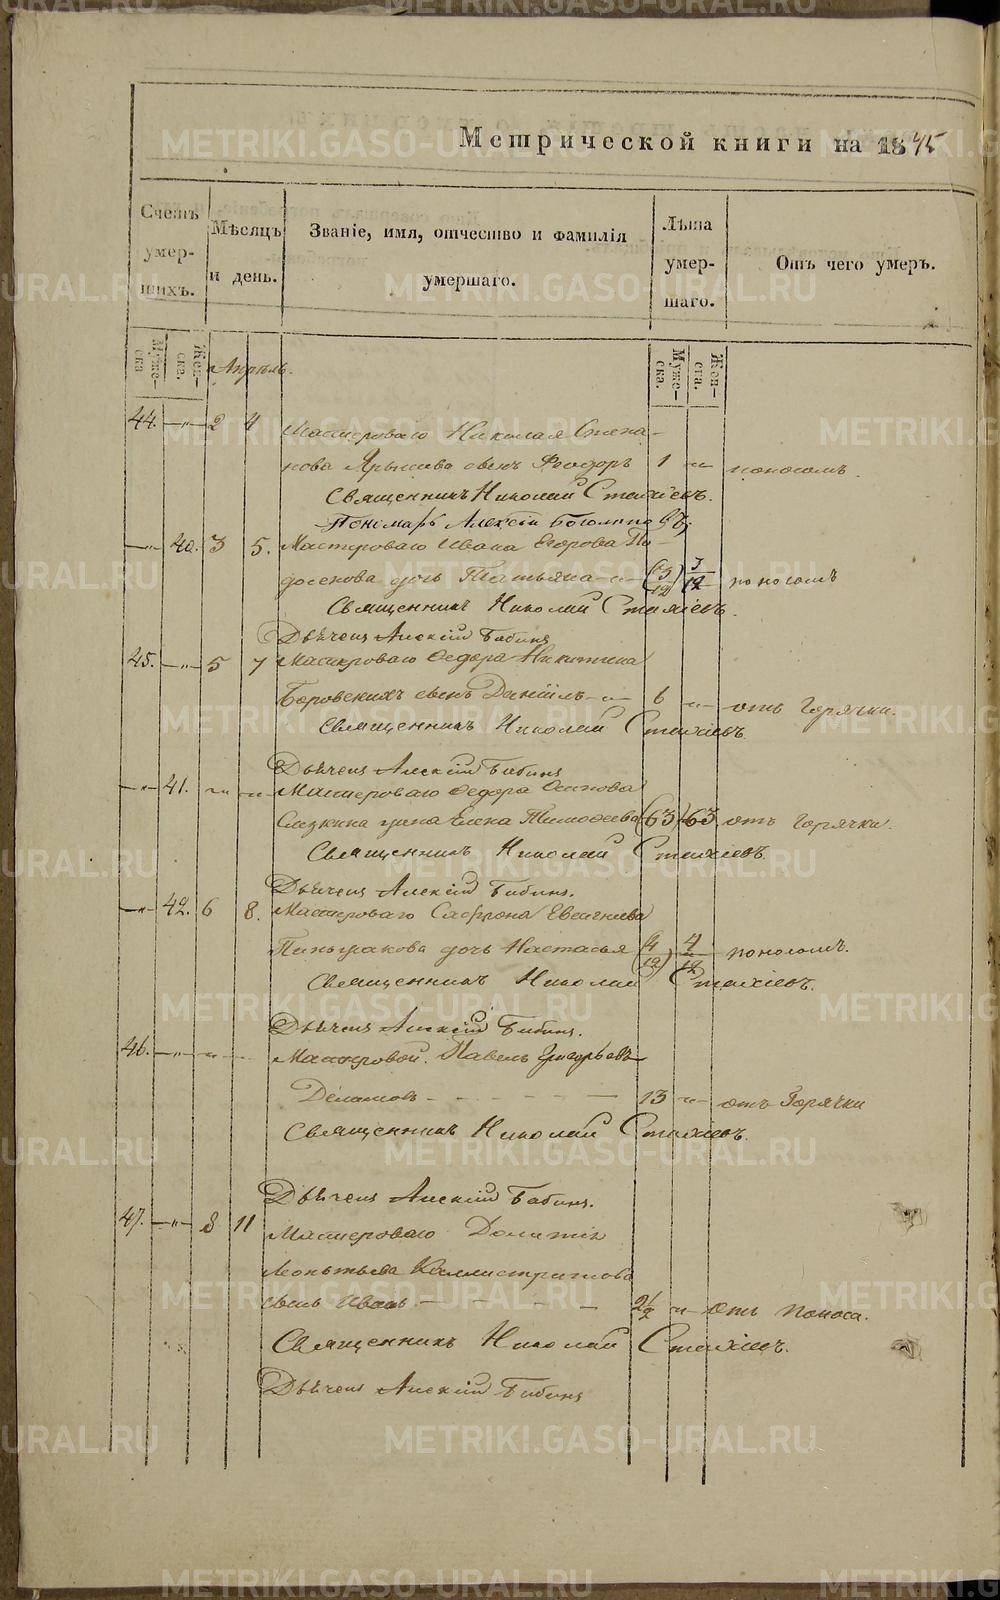 Метрической книги на 1845
Счетъ умер-шихъ.
Мѣсяцъ и день.
Званіе, имя, отчество и фамилія умершаго.
Лѣта умер-шаго.
Отъ чего умеръ.
Муже-ска
Жен-ска.
Муже-ска.
Жен-ска.
Апрѣль.
44. —„— 2 4 Мастероваго Николая Степа-
нова Ярышева сынъ Ѳеодоръ 1 „ поносомъ.
Священникъ Николай Стахіевъ.
Пономарь Алексій Боголюповъ
—„— 40. 3 5. Мастероваго Ивана Егорова По-
дочь Татьяна — „ — 3/12 поносомъ
Священникъ Николай Стахіевъ.
Дьячекъ Алексій Бабинъ
45. —„— 5 7 Мастероваго Ѳедора Никитина
Боровскихъ сынъ Даніилъ — „ 6 „ — отъ Горячки.
Священникъ Николай Стахіевъ
Дьячекъ Алексій Бабинъ
—„— 41. —„— —„— Мастероваго Ѳедора Осипова
жена Елена Тимоѳеева (63) 63. отъ Горячки.
Священникъ Николай Стахіевъ.
Дьячекъ Алексій Бабинъ.
—„— 42. 6 8. Мастероваго Сафрона Евгеніева
дочь Настасья (4/12) 4/12 поносомъ.
Священникъ Николай Стахіевъ.
Дьячекъ Алексій Бабинъ.
46. —„— —„— — Мастеровой Павелъ Григорьевъ
13 „ — отъ Горячки
Священникъ Николай Стахіевъ.
Дьячекъ Алексій Бабинъ.
47. —„— 8 11 Мастероваго
Леонтьева Каллистратова
сынъ Иванъ 2 1/2 „ отъ поноса.
Священникъ Николай Стахіевъ.
Дьячекъ Алексій Бабинъ
METRIKI.GASO-URAL.RU